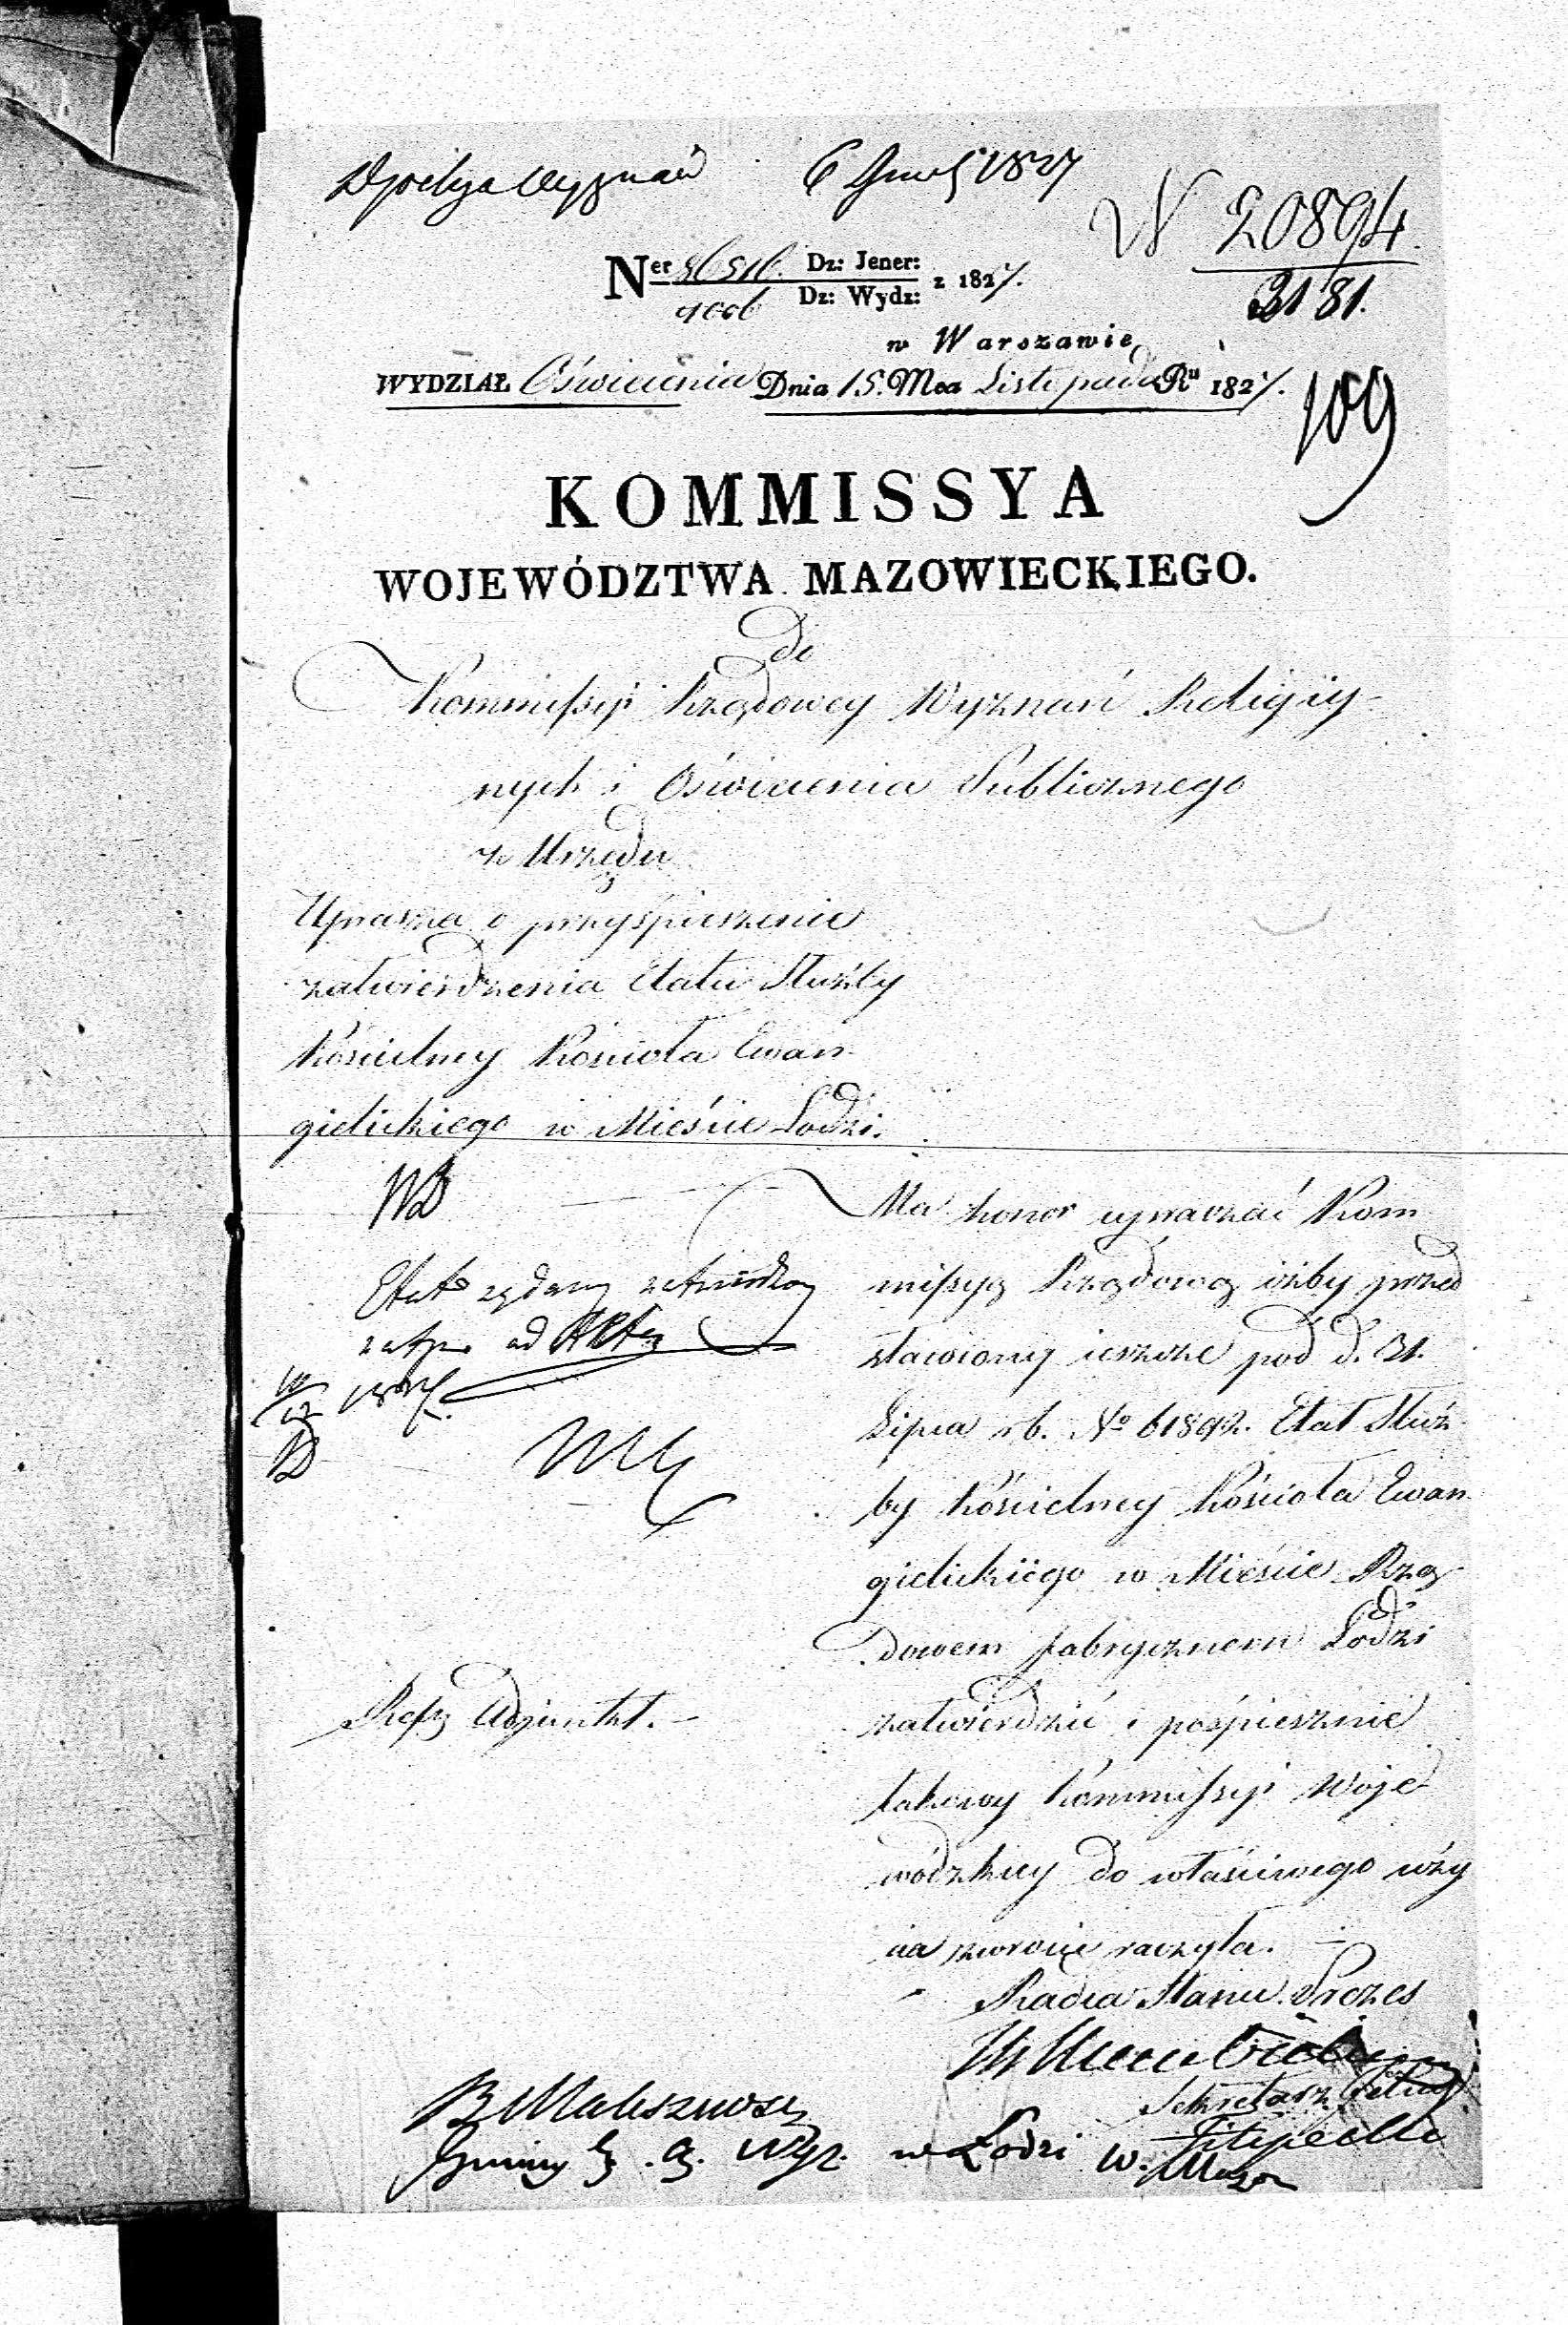 6 1827
N 20894
3181.
Ner 86516. Dz: Jener:
Dz: Wydz: z 1827.
w Warszawie
WYDZIAŁ Oświecenia Dnia 15. Mca Listopada Ru 1827.
109
KOMMISSYA
WOJEWÓDZTWA MAZOWIECKIEGO.
do
Kommissyi Rządowey Wyznań Religiy-
nych i Oświecenia Publicznego
z Urzędu
Uprasza o przyśpieszenie
zatwierdzenia Etatu Służby
Kościelney Kościoła Ewan
gielickiego w Mieście Łodzi.
Ma honor upraszać Kom
missyą Rządową iżby przed
stawiony ieszcze pod d. 31.
Lipca rb. No 61892. Etat Służ
by Kościelney Kościoła Ewan
gielickiego w Mieście Rzą
dowem fabrycznem Łodzi
zatwierdzić i pośpiesznie
takowy Kommissyi Woje
wódzkiey do właściwego uży
cia zwrócić raczyła.
Etat
1827.
Refz Adjunkt.
Radca Stanu Prezes
Sekretarz
Gminy E. A. Wyz. w Łodzi W. Mazo